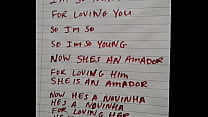 I'm so young
FOR LOVING YOU
SO I'M SO
SO I'M SO YOUNG
NOW SHES AN AMADOR
FOR LOVING HIM
SHE IS AN AMADOR
NOW HES A NOVINHA
HES A NOVINHA
FOR LOVING HER